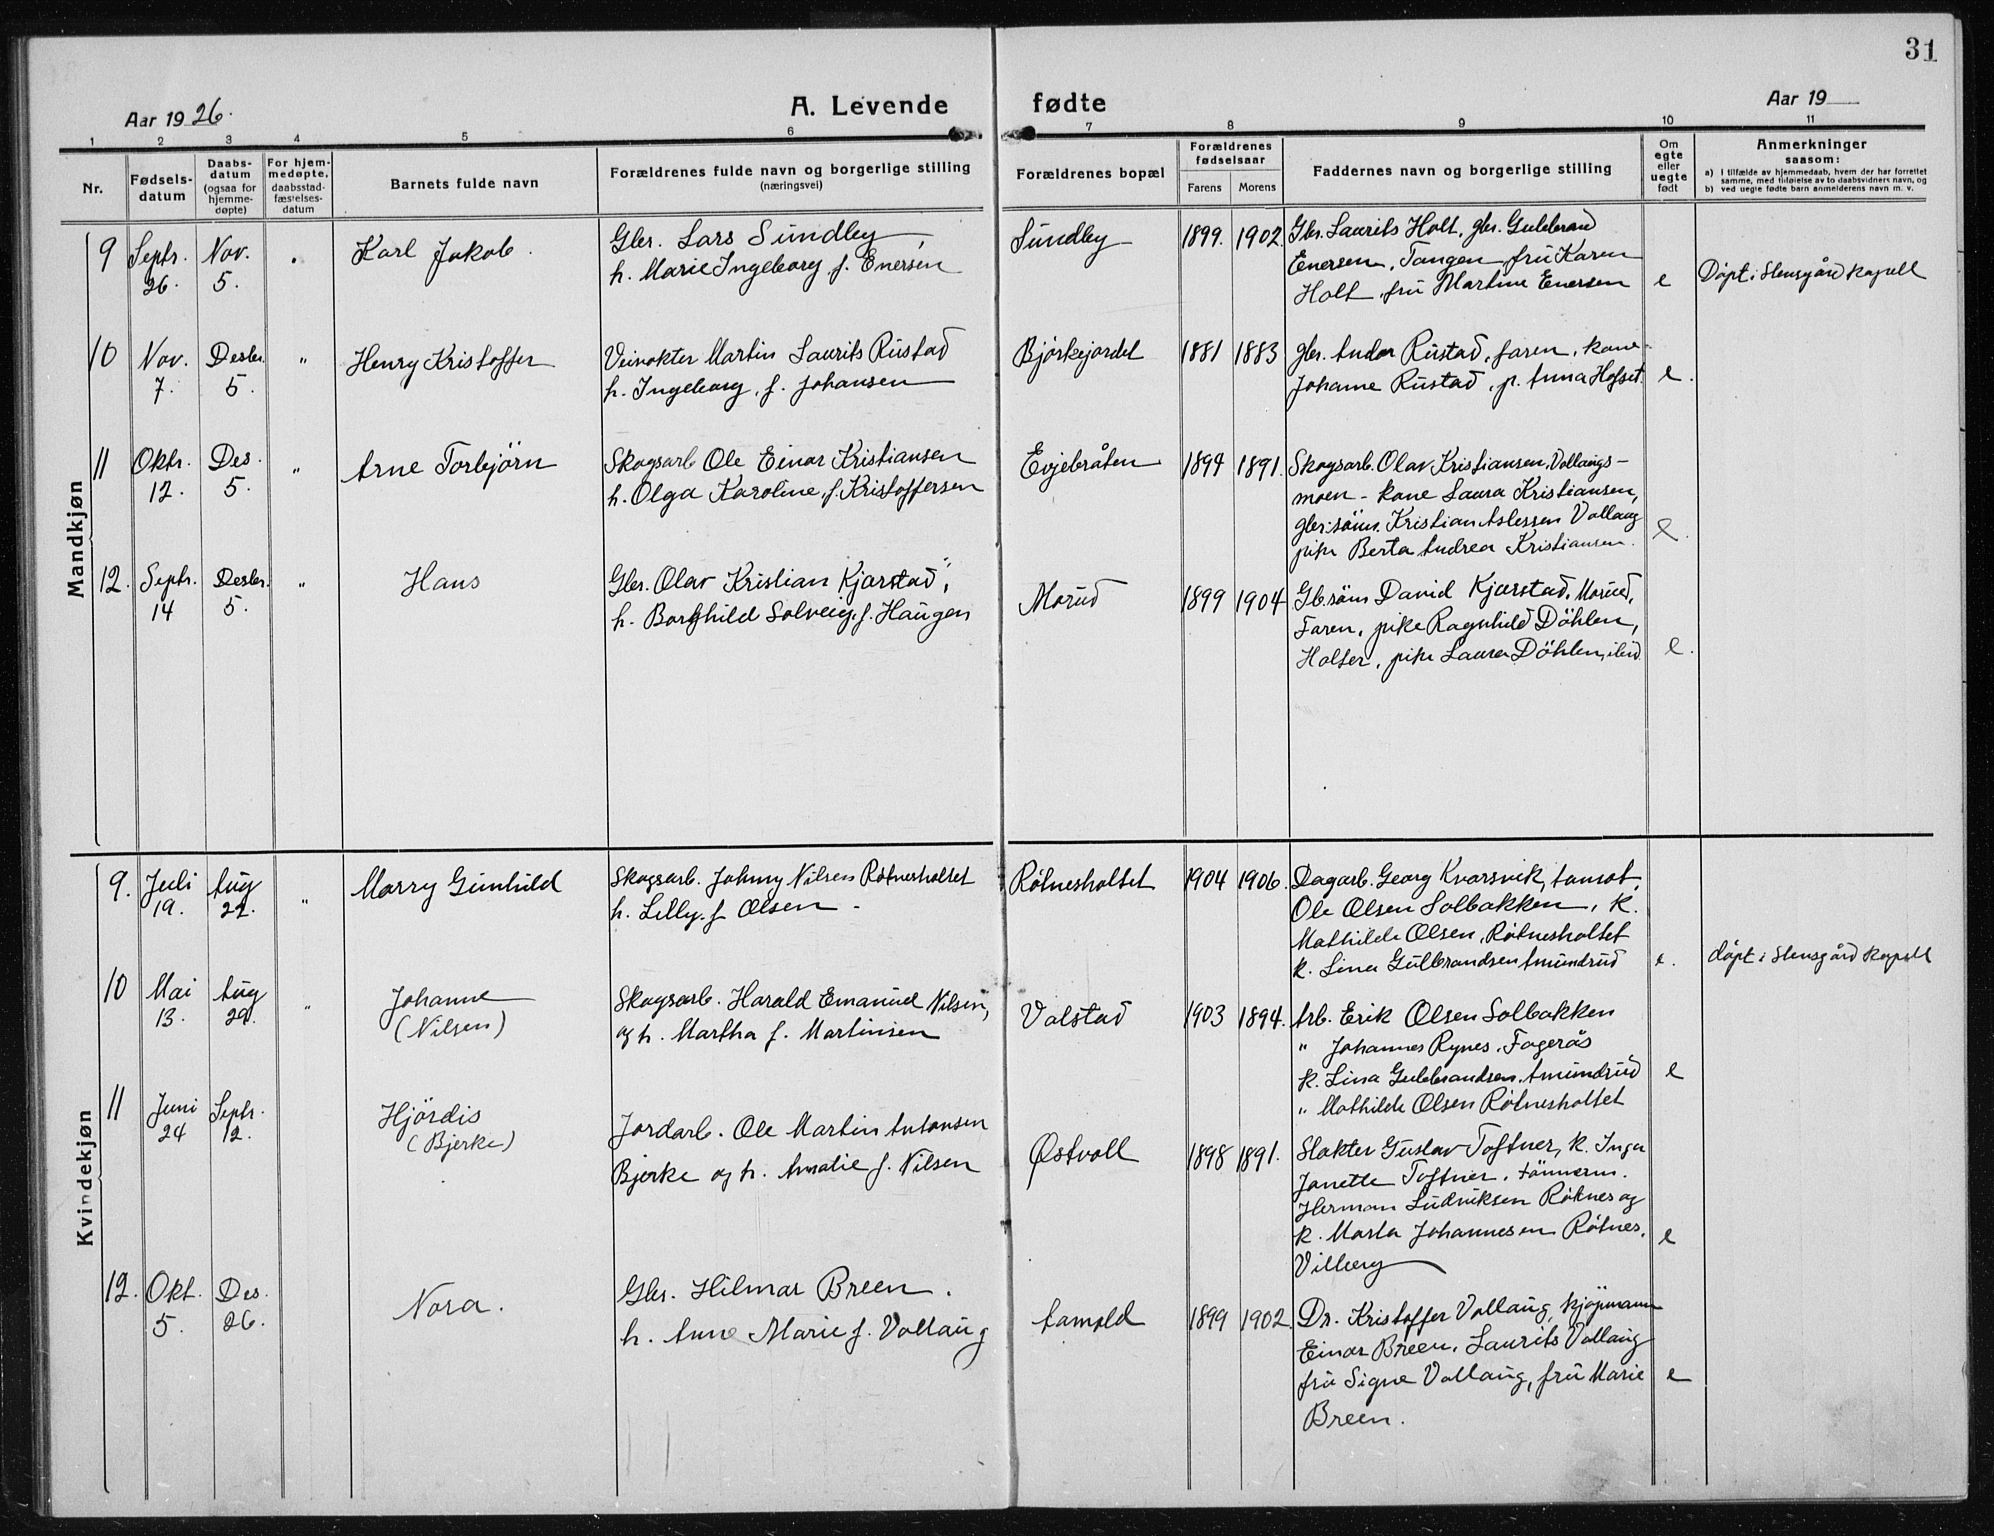 31
Aar 1926.
A. Levende fødte
Aar 19
1 2 3 4 5 6 7 8 9 10 11
Nr.
Fødsels-
datum
Daabs-
datum
(ogsaa for
hjemme-
døpte)
For hjem-
medøpte,
daabsstad-
fæstelses-
datum
Barnets fulde navn
Forældrenes fulde navn og borgerlige stilling
(næringsvei)
Forældrenes bopæl
Forældrenes
fødselsaar
Farens Morens
Faddernes navn og borgerlige stilling
Om
egte
eller
uegte
født
Anmerkninger
saasom:
a) I tilfælde av hjemmedaab, hvem der har forrettet
samme, med tilføielse av to daabsvidners navn, og
b) ved uegte fødte barn anmelderens navn m. v.
Mandkjøn
9 Septr. 26. Nov. 5. Karl Jakob.
Gbr. Lars Sundby,
h. Marie Ingeborg f. Enersen
Sundby 1899. 1902.
Gbr. Laurits Holt, gbr. Gulbrand
Enersen, Tangen, fru Karen
Holt, fru Martine Enersen e
Döpt i Stensgård kapell
10 Nov. 7. Desbr. 5. " Henry Kristoffer
Veivokter Martin Laurits Rustad
h. Ingeborg, f. Johansen
Bjørkejordet 1881 1883
gbr. Andor Rustad, faren, kone
Johanne Rustad, p. Anna Hofset. e.
11 Oktr. 12. Des. 5. " Arne Torbjörn
Skogsarb Ole Einar Kristiansen
h. Olga Karoline, f. Kristoffersen
Evjebråten 1894 1891.
Skogsarb. Olav Kristiansen, Vollaugs-
moen - kone Laura Kristiansen,
gbr.søns. Kristian Aslessen Vollaug
pike Berta Andrea Kristiansen. e.
12. Septr. 14 Desbr. 5. " Hans
Gbr. Olav Kristian Kjærstad,
h. Borghild Solveig, f. Haugen
Morud 1899 1904
Gb.søn David Kjærstad, Morud,
Faren, pike Ragnhild Döhlen,
Holter, pike Laura Döhlen, ibid. e.
Kvindekjøn
9. Juli 19. Aug 22. " Marry Gunhild
Skogsarb. Johnny Nilsen Røtnesholtet
h. Lilly f. Olsen -
Røtnesholtet 1904 1906.
Dagarb. Georg Kvarsvik,
Ole Olsen Solbakken, k.
Mathilde Olsen, Røtnesholtet
k. Lina Gulbrandsen Amundrud e.
döpt i Stensgård kapell
10 Mai 13. Aug 29. " Johanne
(Nilsen)
Skogsarb. Harald Emanuel Nilsen,
og h. Martha f. Martinsen
Valstad 1903 1894.
Arb. Erik Olsen Solbakken
" Johannes Rynes, Fagerås
k. Lina Gulbrandsen, Amundrud e
" Mathilde Olsen Røtnesholtet
11 Juni 24 Septr. 12. Hjördis
(Bjerke)
Jordarb. Ole Martin Antonsen
Bjerke og h. Amalie f. Nilsen
Østvoll 1898 1891.
Slakter Gustav Toftner, k. Inga
Janette Toftner, tömmerm.
Herman Ludviksen Røtnes og
k. Marta Johannesen Røtnes,
Vilberg e
12. Okt. 5. Des. 26. Nora.
Gbr. Hilmar Breen.
h. Anne Marie f. Vollaug
Aamold 1899 1902.
Dr. Kristoffer Vollaug, kjøpmann
Einar Breen, Laurits Vollaug
fru Signe Vollaug, fru Marie e
Breen.